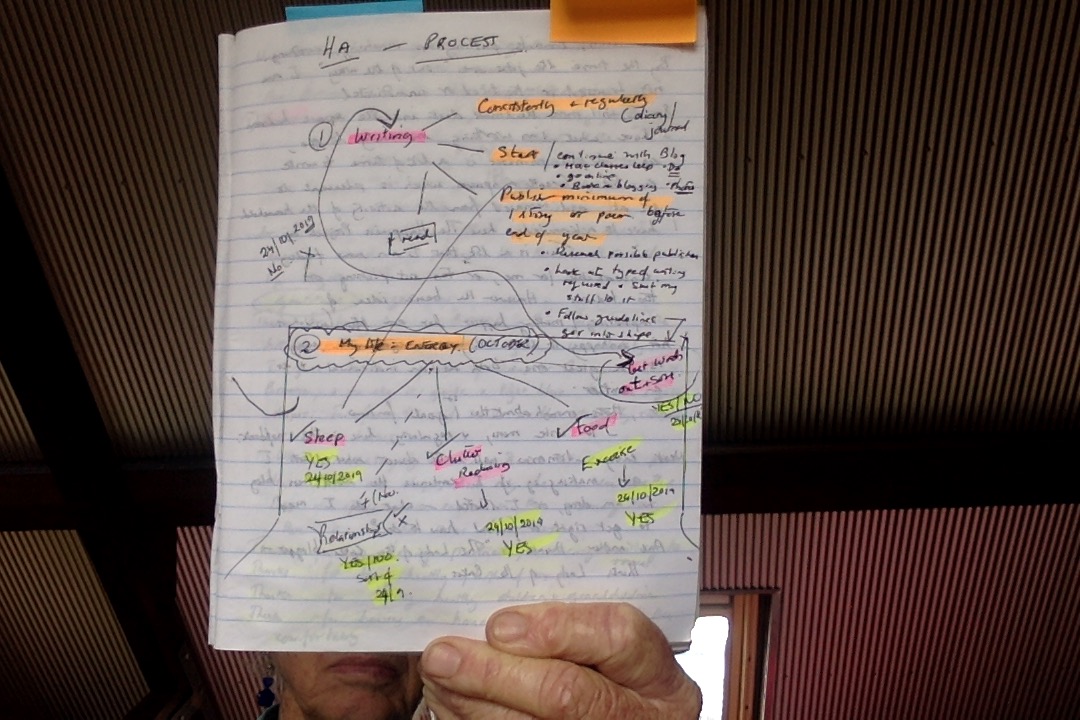 HA — PROCESS
1
Writing
Consistently + regularly
(diary/
journal
Start / continue with Blog
• go online
• Book on blogging • Photos
Publish minimum of
1 story or poem before
end of year
read
24/10/2019
No
• Research possible publisher
• Look at type of writing
required + Send my
stuff to it
• Follow guidelines
get into shape
2 My life = ENERGY (OCTOBER)
YES/NO
Sleep
YES
24/10/2019
Clutter
Reducing
24/10/2019
YES
Food
Exercise
24/10/2019
YES
Relationships
YES/NO.
Sort of